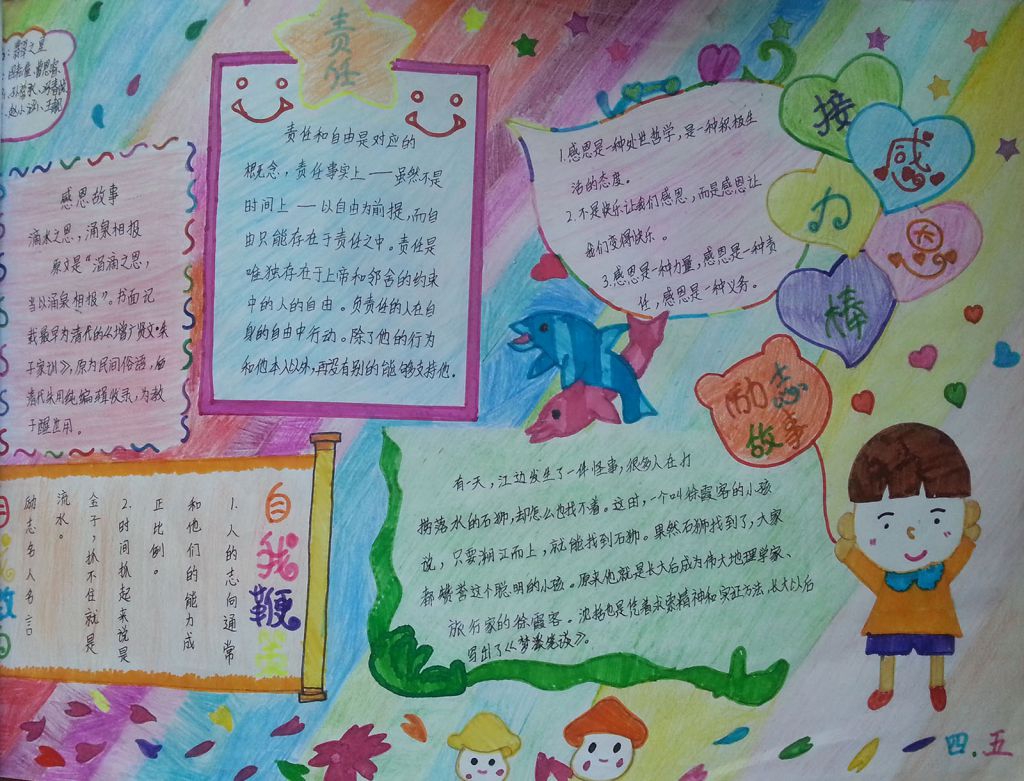 责任
责任和自由是对应的
概念，责任事实上——虽然不是
时间上——以自由为前提，而自
由只能存在于责任之中。责任是
唯独存在于上帝和邻舍的约束
中的人的自由。负责任的人在自
身的自由中行动。除了他的行为
和他本人以外，再没有别的能够支持他。
感恩故事
滴水之恩，涌泉相报
原文是“滴滴之恩，
当以涌泉相报”。书面记
载最早为清代的《增广贤文·朱
子家训》，原为民间俗语，由
清代朱用纯编辑收录，为教
子醒世用。
接力棒
感恩
1.感恩是一种处世哲学，是一种积极生
活的态度。
2.不是快乐让我们感恩，而是感恩让
我们变得快乐。
3.感恩是一种力量，感恩是一种责
任，感恩是一种义务。
励志
故事
有一天，江边发生了一件怪事，很多人在打
捞落水的石狮，却怎么也找不着。这时，一个叫徐霞客的小孩
说，只要溯江而上，就能找到石狮。果然石狮找到了，大家
都赞赏这个聪明的小孩。原来他就是长大后成为伟大地理学家、
旅行家的徐霞客。沈括也是凭着求索精神和实证方法长大以后
写出了《梦溪笔谈》。
自我鞭策
1.人的志向通常
和他们的能力成
正比例。
2.时间抓起来说是
金子，抓不住就是
流水。
励志名人名言
四.五